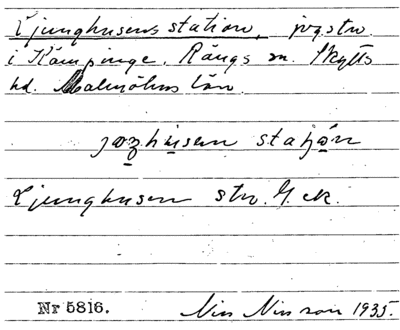 Ljunghusens station, jvgstn.
i Kämpinge, Rängs sn. Skytts
hd. Malmöhus län.
husen
Ljunghusen stn. G.ek.
Nr 5816. Nils Nilsson 1935.